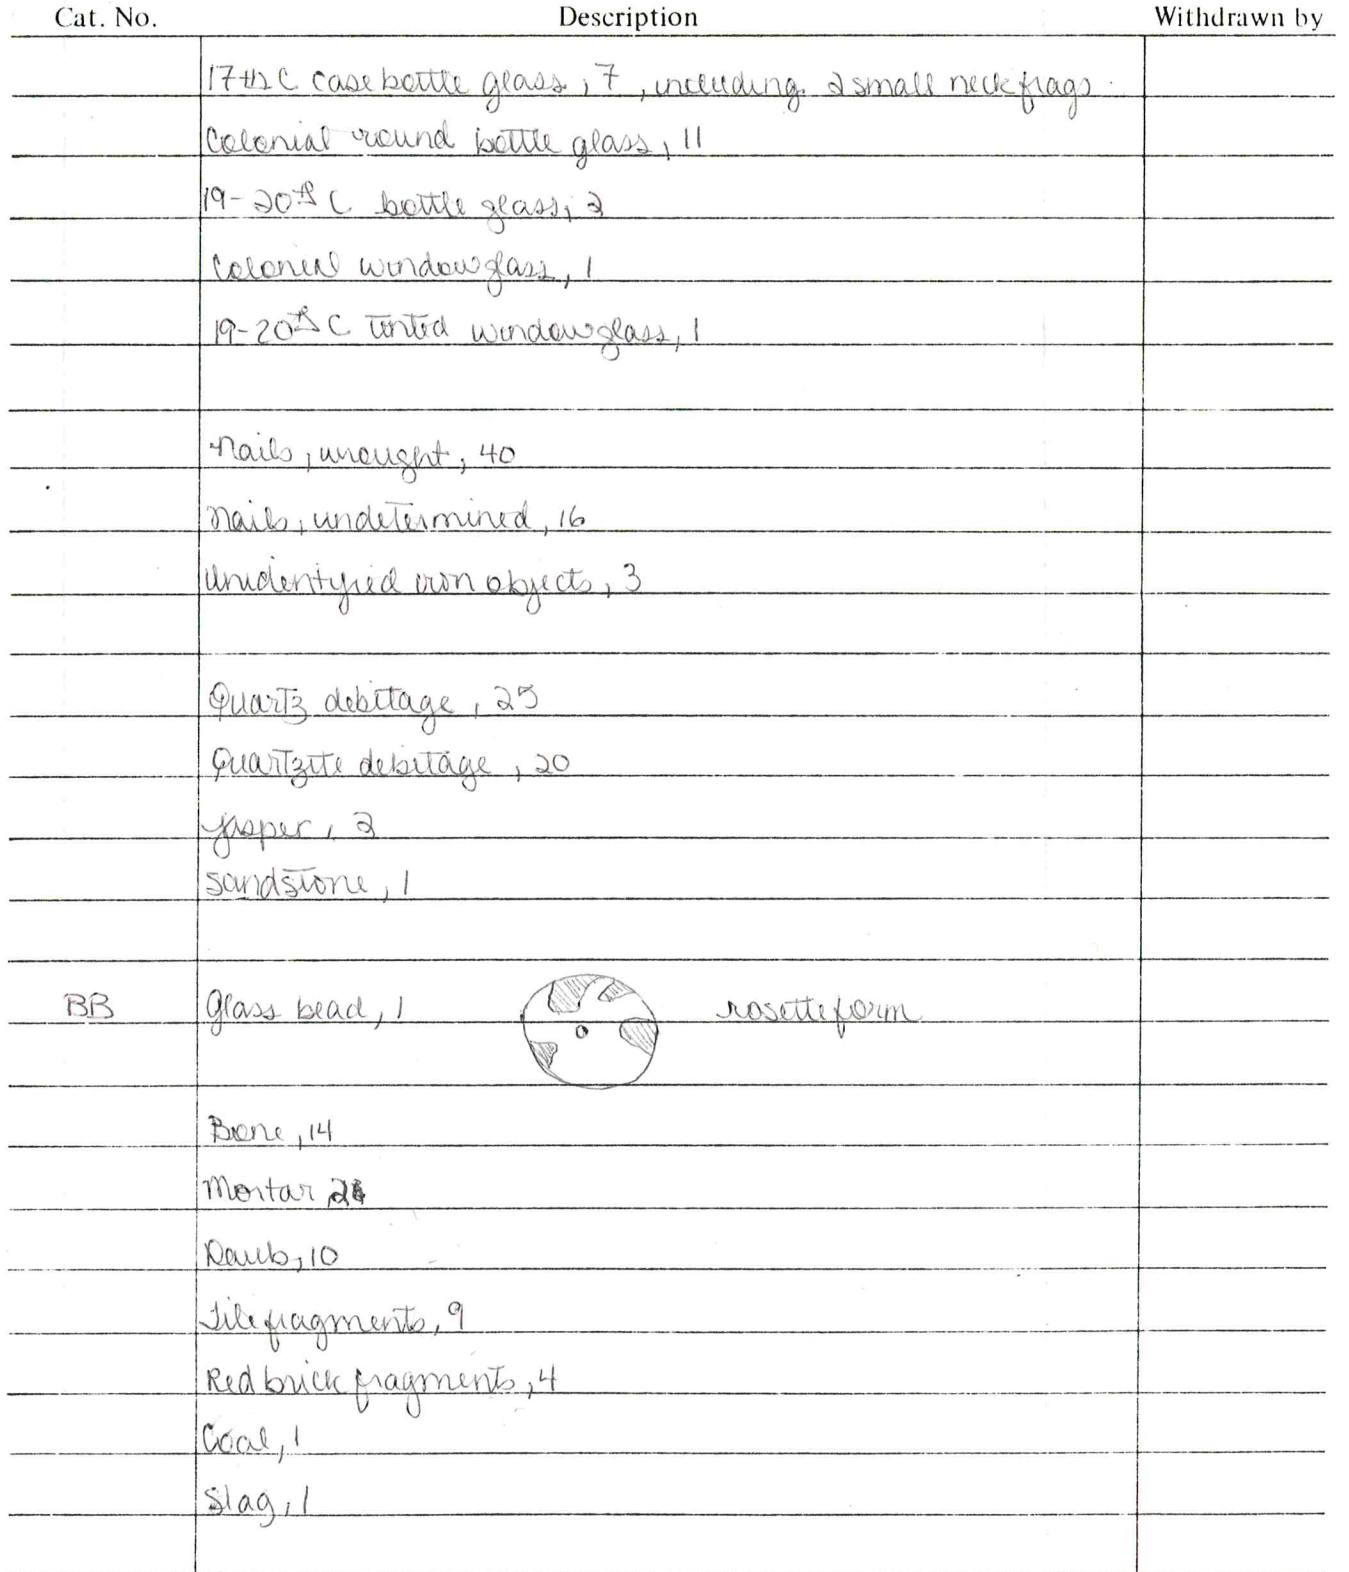 Cat. No. Description Withdrawn by
17th C case bottle glass, 7, including 2 small neck frags
Colonial round bottle glass, 11
19-20th C bottle glass, 2
Colonial window glass, 1
19-20th C tinted window glass, 1
Nails, wrought, 40
Nails, undetermined, 16
Unidentified iron objects, 3
Quartz debitage, 25
Quartzite debitage, 20
Jasper, 2
Sandstone, 1
BB Glass bead, 1 rosette form
Bone, 14
Mortar
Daub, 10
Tile fragments, 9
Red brick fragments, 4
Coal, 1
Slag, 1